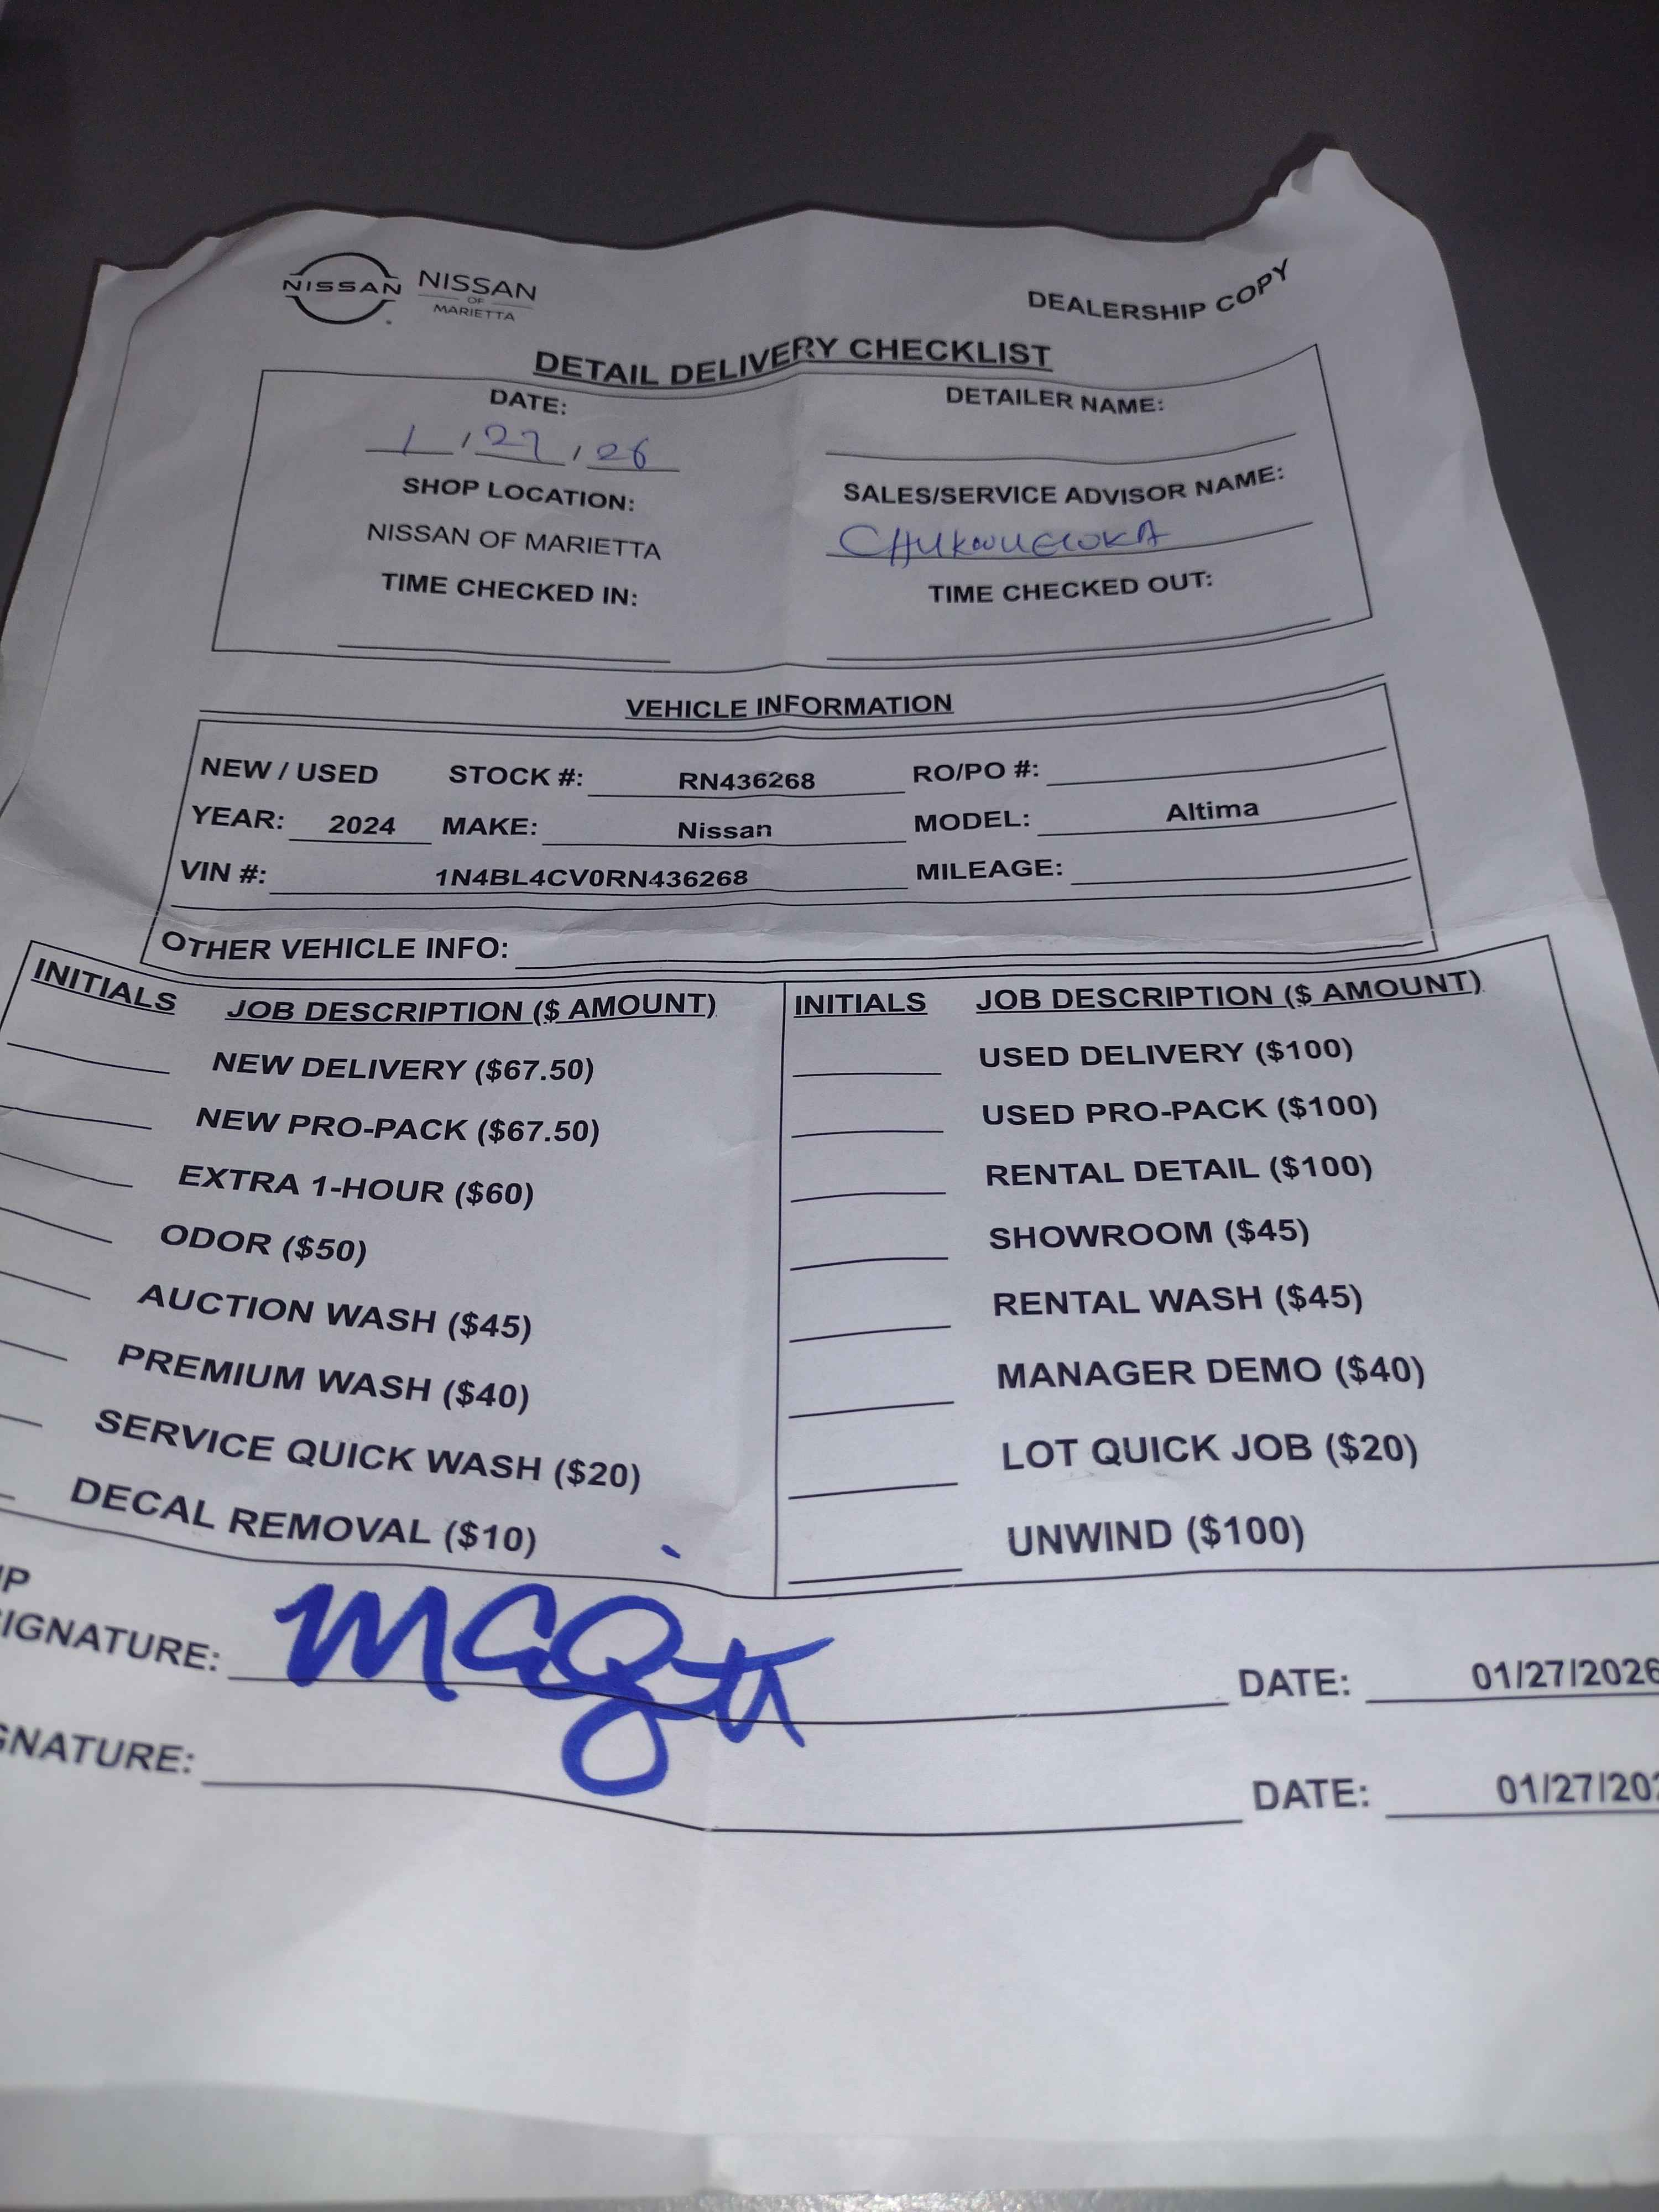 NISSAN NISSAN OF MARIETTA
DEALERSHIP COPY
DETAIL DELIVERY CHECKLIST
DATE: DETAILER NAME:
1 / 27 / 26
SHOP LOCATION: SALES/SERVICE ADVISOR NAME:
NISSAN OF MARIETTA
TIME CHECKED IN: TIME CHECKED OUT:
VEHICLE INFORMATION
NEW / USED STOCK #: RN436268 RO/PO #:
YEAR: 2024 MAKE: Nissan MODEL: Altima
VIN #: 1N4BL4CV0RN436268 MILEAGE:
OTHER VEHICLE INFO:
INITIALS JOB DESCRIPTION ($ AMOUNT) INITIALS JOB DESCRIPTION ($ AMOUNT)
NEW DELIVERY ($67.50) USED DELIVERY ($100)
NEW PRO-PACK ($67.50) USED PRO-PACK ($100)
EXTRA 1-HOUR ($60) RENTAL DETAIL ($100)
ODOR ($50) SHOWROOM ($45)
AUCTION WASH ($45) RENTAL WASH ($45)
PREMIUM WASH ($40) MANAGER DEMO ($40)
SERVICE QUICK WASH ($20) LOT QUICK JOB ($20)
DECAL REMOVAL ($10) UNWIND ($100)
IP
IGNATURE: DATE: 01/27/2026
GNATURE: DATE: 01/27/202